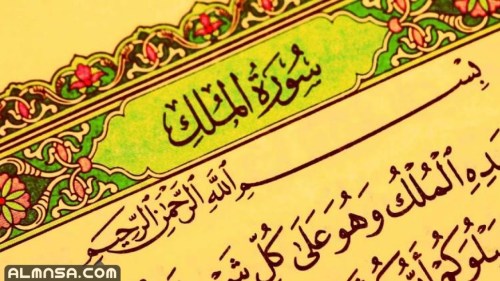 سُورَةُ المُلْكِ
بِسْمِ اللَّهِ الرَّحْمَٰنِ الرَّحِيمِ
الْمُلْكُ وَهُوَ عَلَىٰ كُلِّ
ALMNSA.COM